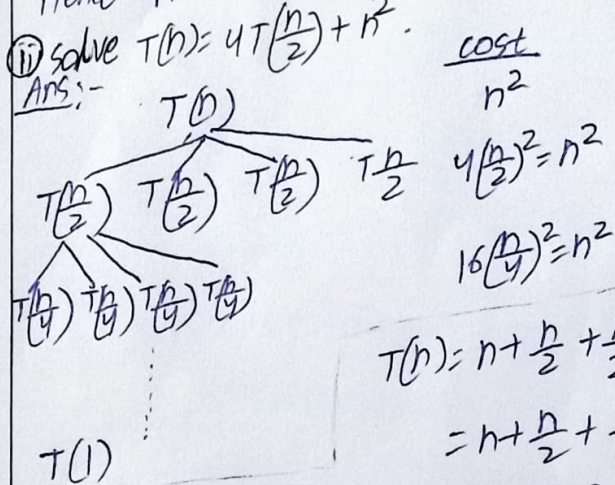 (ii) solve T(n) = 4T(n/2) + n².
Ans:-
cost
T(n) n²
T(n/2) T(n/2) T(n/2) T n/2 4(n/2)² = n²
16(n/4)² = n²
T(n/4) T(n/4) T(n/4) T(n/4)
T(n) = n + n/2 +
= n + n/2 +
T(1)